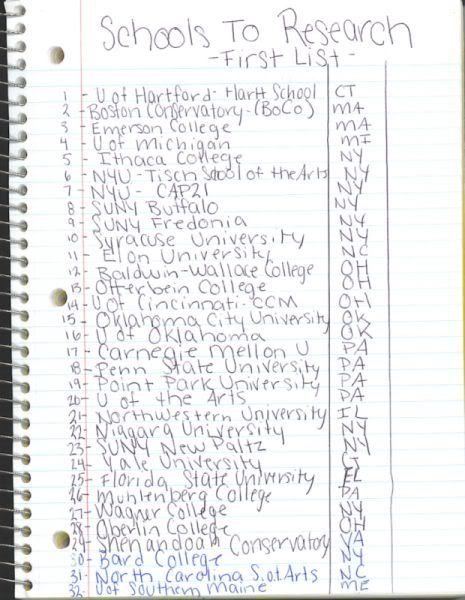 Schools To Research
- First List -
1 - U of Hartford - Hartt School CT
2 - Boston Conservatory - (BoCo) MA
3 - Emerson College MA
4 - U of Michigan MI
5 - Ithaca College NY
6 - NYU - Tisch School of the Arts NY
7 - NYU - CAP21 NY
8 - SUNY Buffalo NY
9 - SUNY Fredonia NY
10 - Syracuse University NY
11 - Elon University NC
12 - Baldwin-Wallace College OH
13 - Otterbein College OH
14 - U of Cincinnati - CCM OH
15 - Oklahoma City University OK
16 - U of Oklahoma OK
17 - Carnegie Mellon U PA
18 - Penn State University PA
19 - Point Park University PA
20 - U of the Arts PA
21 - Northwestern University IL
22 - Niagara University NY
23 - SUNY New Paltz NY
24 - Yale University CT
25 - Florida State University FL
26 - Muhlenberg College PA
27 - Wagner College NY
28 - Oberlin College OH
29 - Shenandoah Conservatory VA
30 - Bard College NY
31 - North Carolina S.ot Arts NC
32 - U of Southern Maine ME